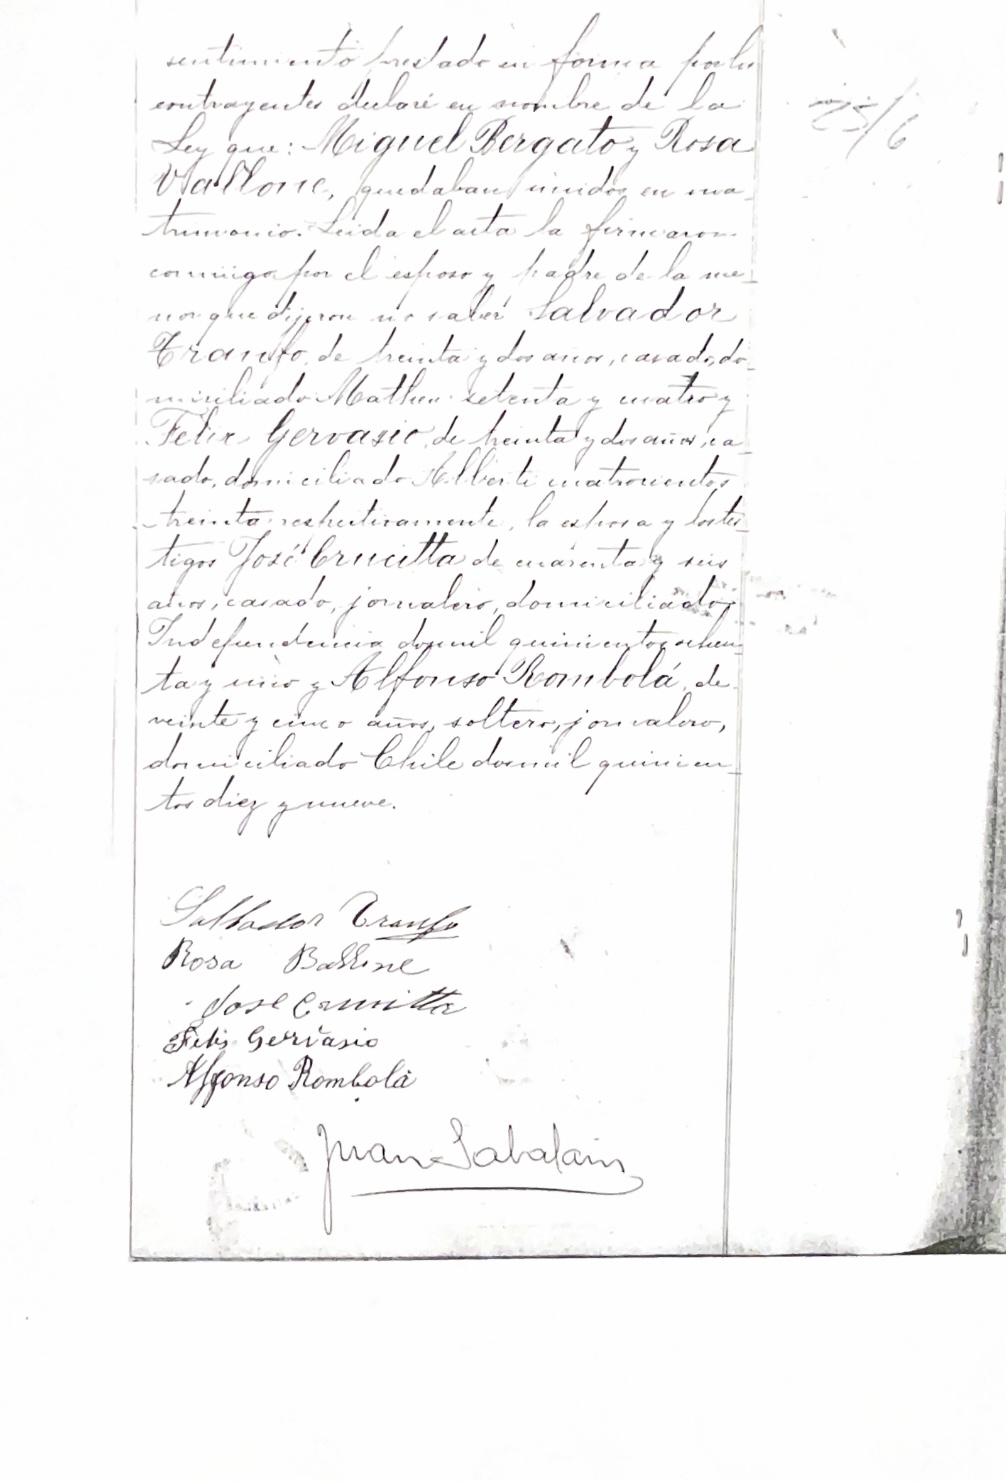 sentimiento prestado en forma por los
contrayentes declaré en nombre de la
Ley que: Miguel Bergato y Rosa
Vallone, quedaban unidos en ma_
trimonio. Leida el acta la firmaron
conmigo por el esposo y padre de la me_
nor que dijeron no saber Salvador
Tranfo, de treinta y dos años, casado, do_
miciliado Matheu setenta y cuatro y
Felix Gervasio, de treinta y dos años, ca
sado, domiciliado Alberti cuatrocientos
treinta respectivamente, la esposa y los tes
tigos José Crucitta de cuarenta y seis
años, casado, jornalero, domiciliado
Independencia dosmil quinientos ochen_
ta y uno y Alfonso Rombolá, de
veinte y cinco años, soltero, jornalero,
domiciliado Chile dosmil quinien_
tos diez y nueve.
Salbador Tranfo
Rosa Ballone
Jose Crucitta
Felis Gervasio
Alfonso Rombolà
Juan Sabalain